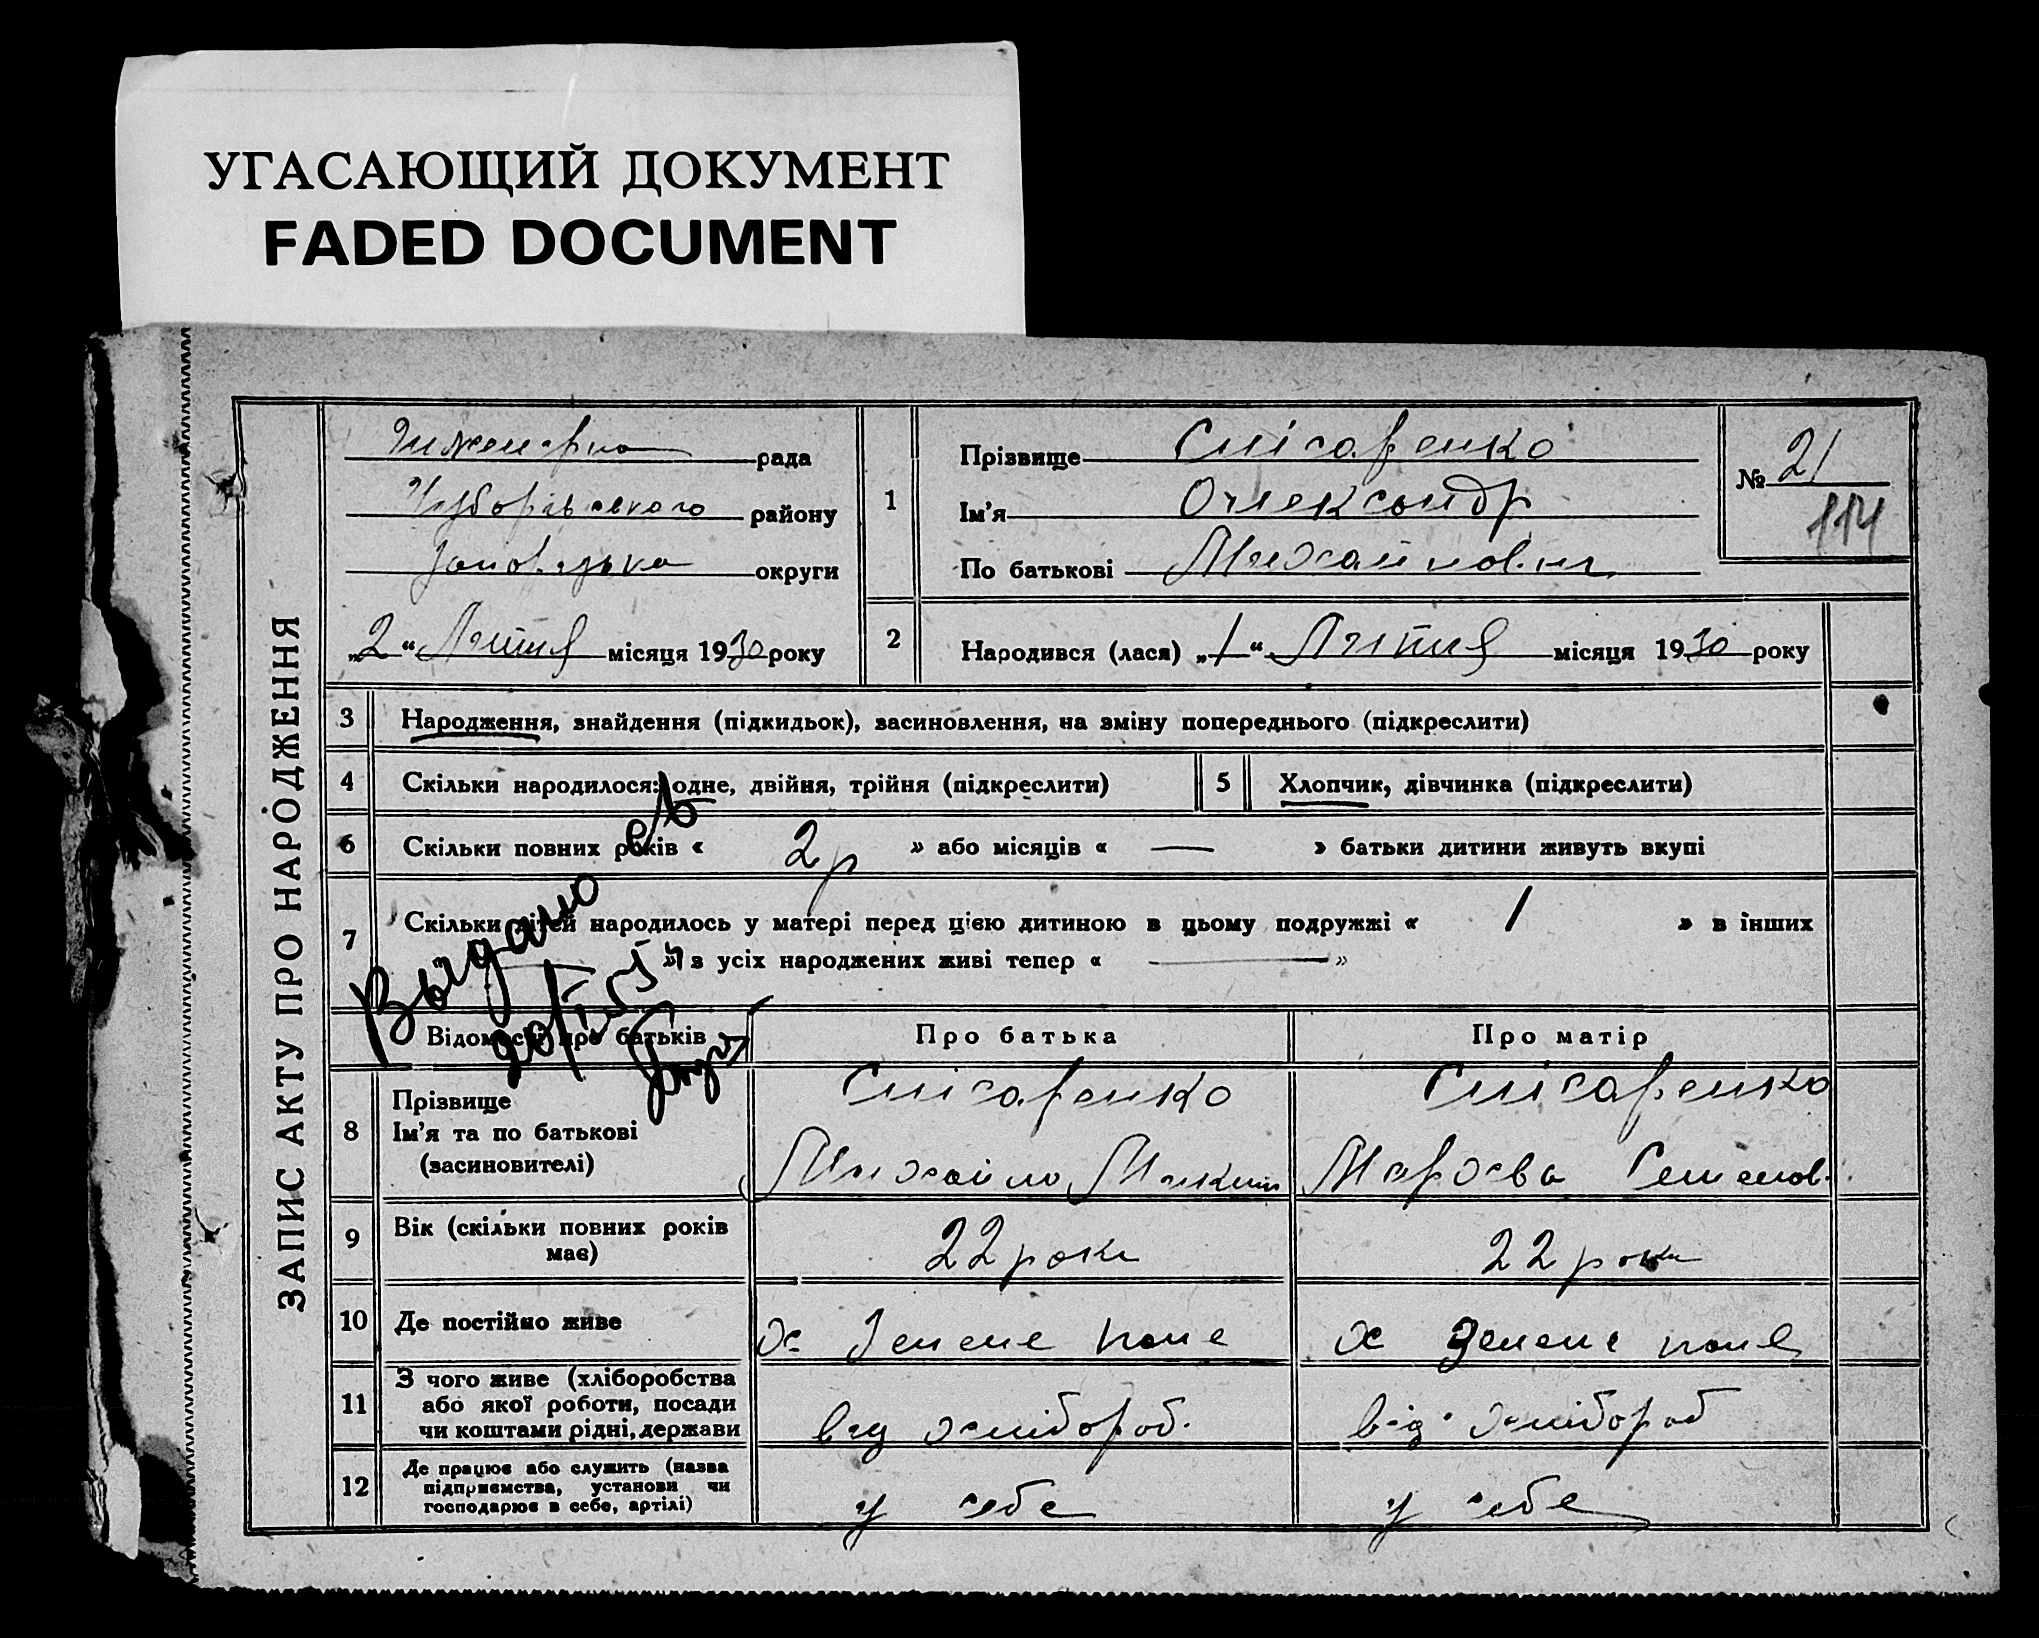 УГАСАЮЩИЙ ДОКУМЕНТ
FADED DOCUMENT
ЗАПИС АКТУ ПРО НАРОДЖЕННЯ
рада
району
округи
„2“ Лютия місяця 1930 року
1
Прізвище Слісаренко
Ім'я Олександр
По батькові Михайлов.
№ 21
114
2
Народився (лася) „1“ Лютия місяця 1930 року
3 Народження, знайдення (підкидьок), засиновлення, на зміну попереднього (підкреслити)
4 Скільки народилося: одне, двійня, трійня (підкреслити)
5 Хлопчик, дівчинка (підкреслити)
6 Скільки повних років « 2 р » або місяців « — » батьки дитини живуть вкупі
7 Скільки дітей народилось у матері перед цією дитиною в цьому подружжі « 1 » в інших
» з усіх народжених живі тепер « — »
Выдано
Відомості про батьків
Про батька
Про матір
8 Прізвище
Ім'я та по батькові
(засиновителі)
Слісаренко
Михайло
Слісаренко
Мархва Семенов.
9 Вік (скільки повних років
має)
22 роки
22 роки
10 Де постійно живе
х. Зелене поле
х Зелене поле
11 З чого живе (хліборобства
або якої роботи, посади
чи коштами рідні, держави
від хлібороб.
від хлібороб
12 Де працює або служить (назва
підприємства, установи чи
господарює в себе, артілі)
у себе
у себе